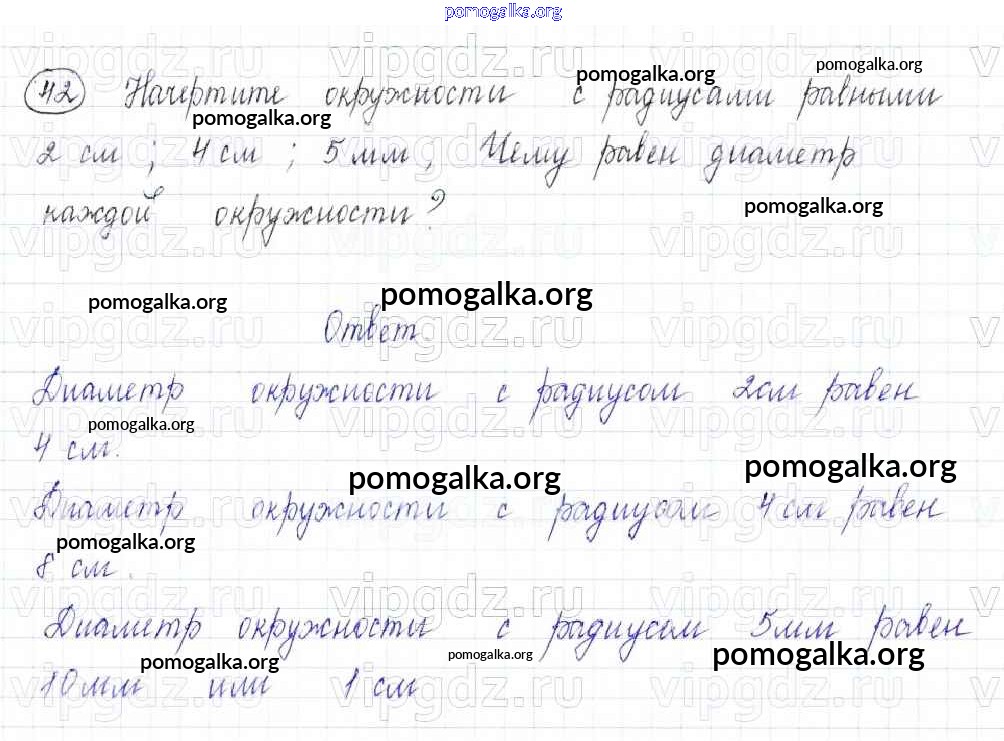 pomogalka.org
42 Начертите окружности с радиусами равными
2 см ; 4 см ; 5 мм, Чему равен диаметр
каждой окружности?
Ответ.
Диаметр окружности с радиусом 2см равен
4 см.
Диаметр окружности с радиусом 4 см равен
8 см.
Диаметр окружности с радиусом 5мм равен
10мм или 1 см
pomogalka.org
pomogalka.org
pomogalka.org
pomogalka.org
pomogalka.org
pomogalka.org
pomogalka.org
pomogalka.org
pomogalka.org
pomogalka.org
pomogalka.org
pomogalka.org
pomogalka.org
vipgdz.ru